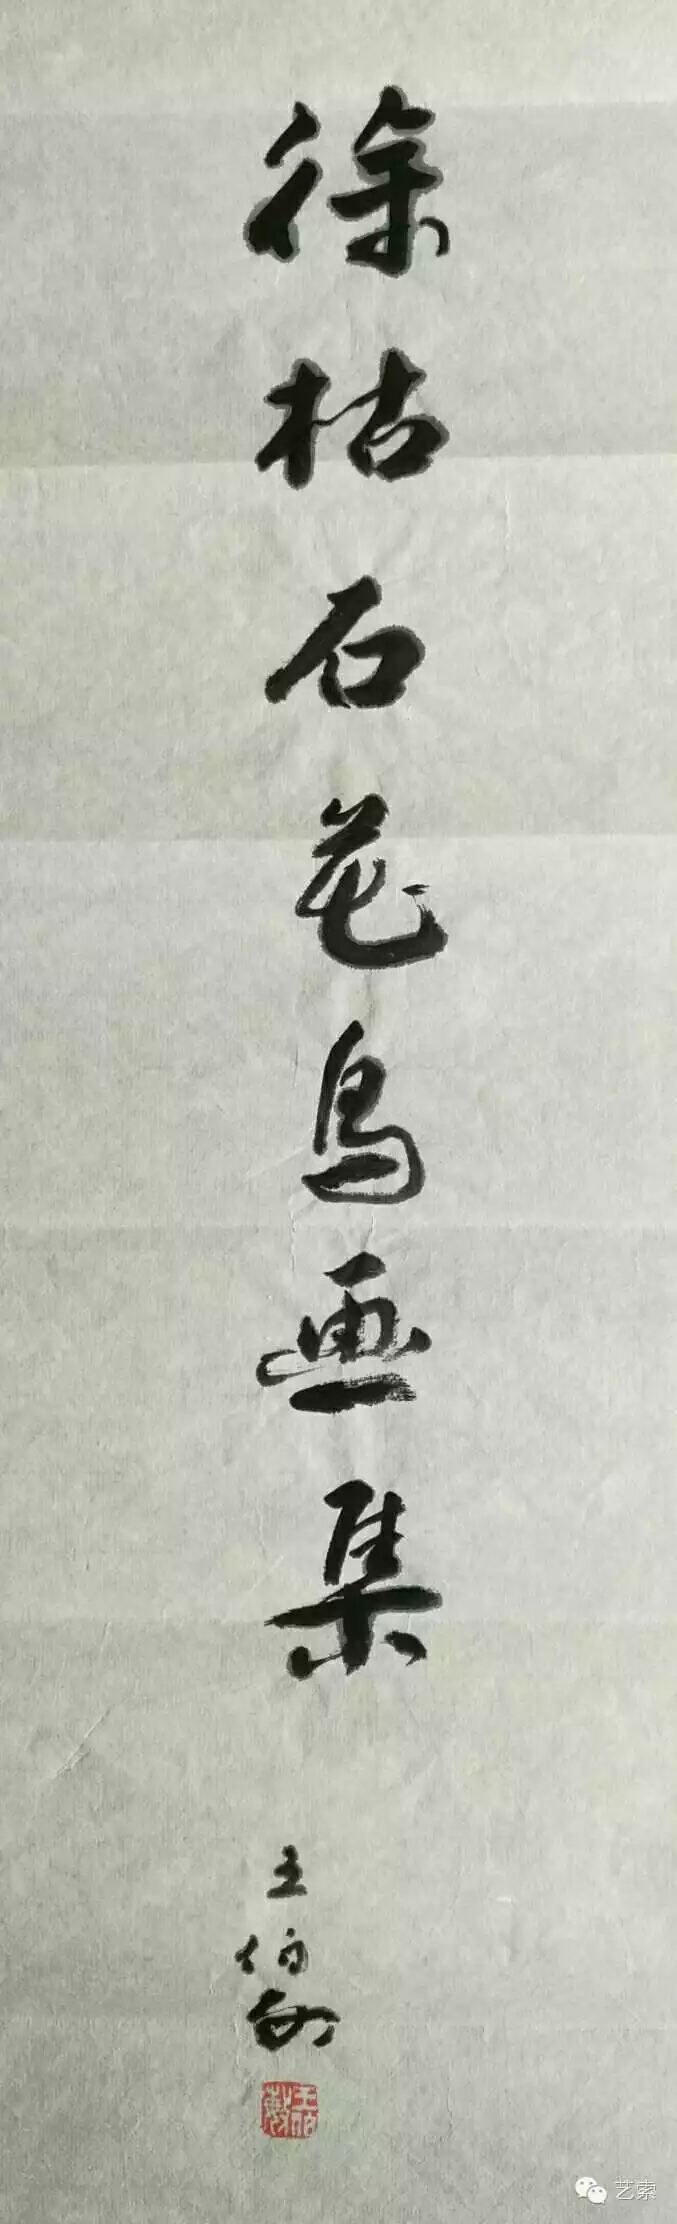 徐枯石花鸟画集
王伯敏
王伯敏
艺索